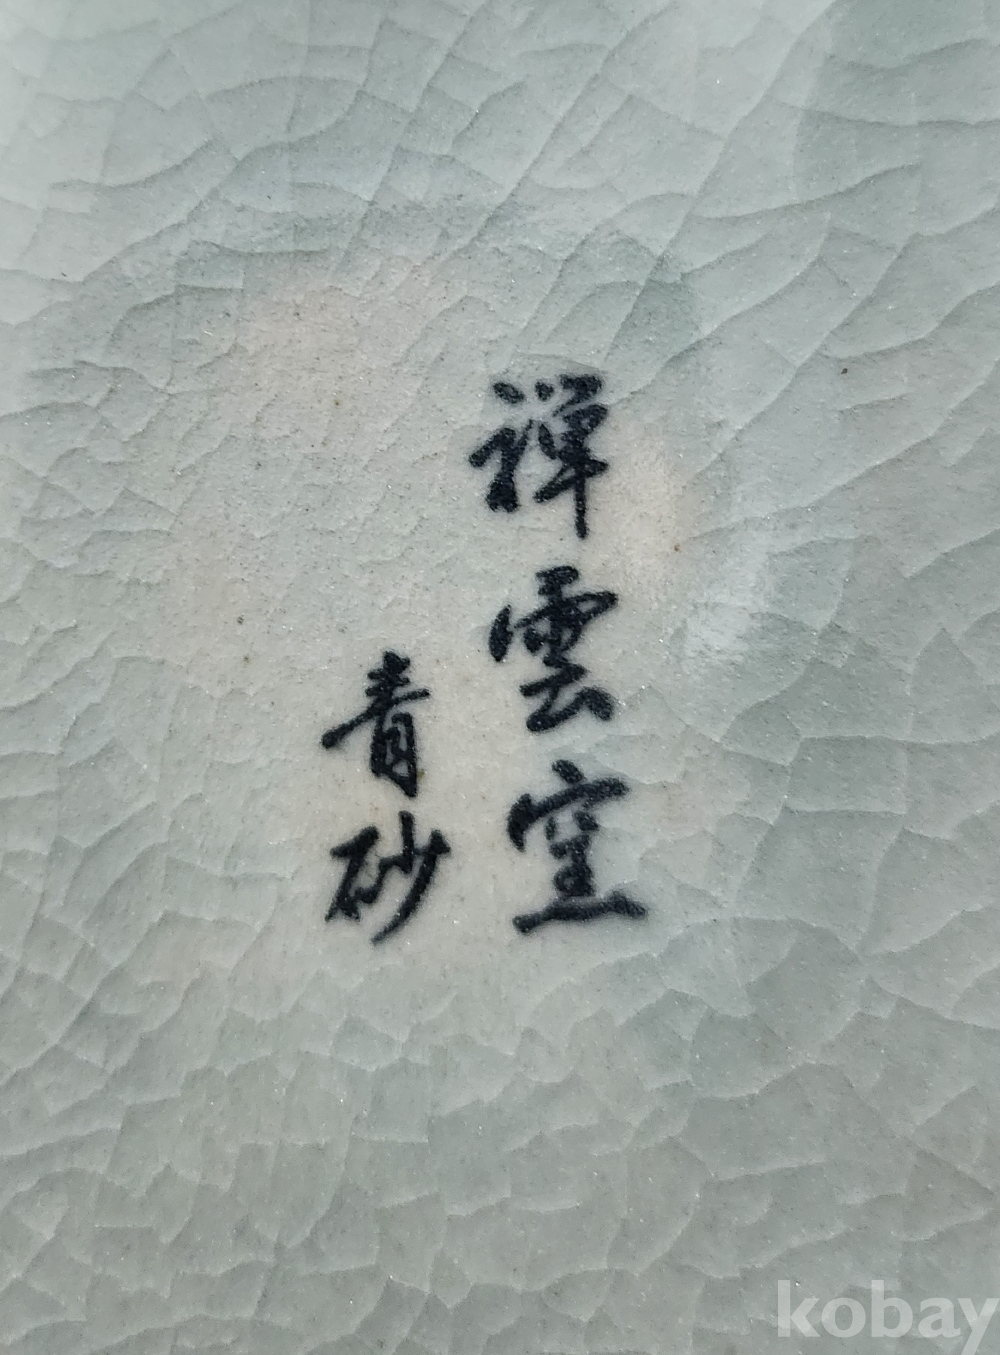 禅雲窑
青砂
kobay